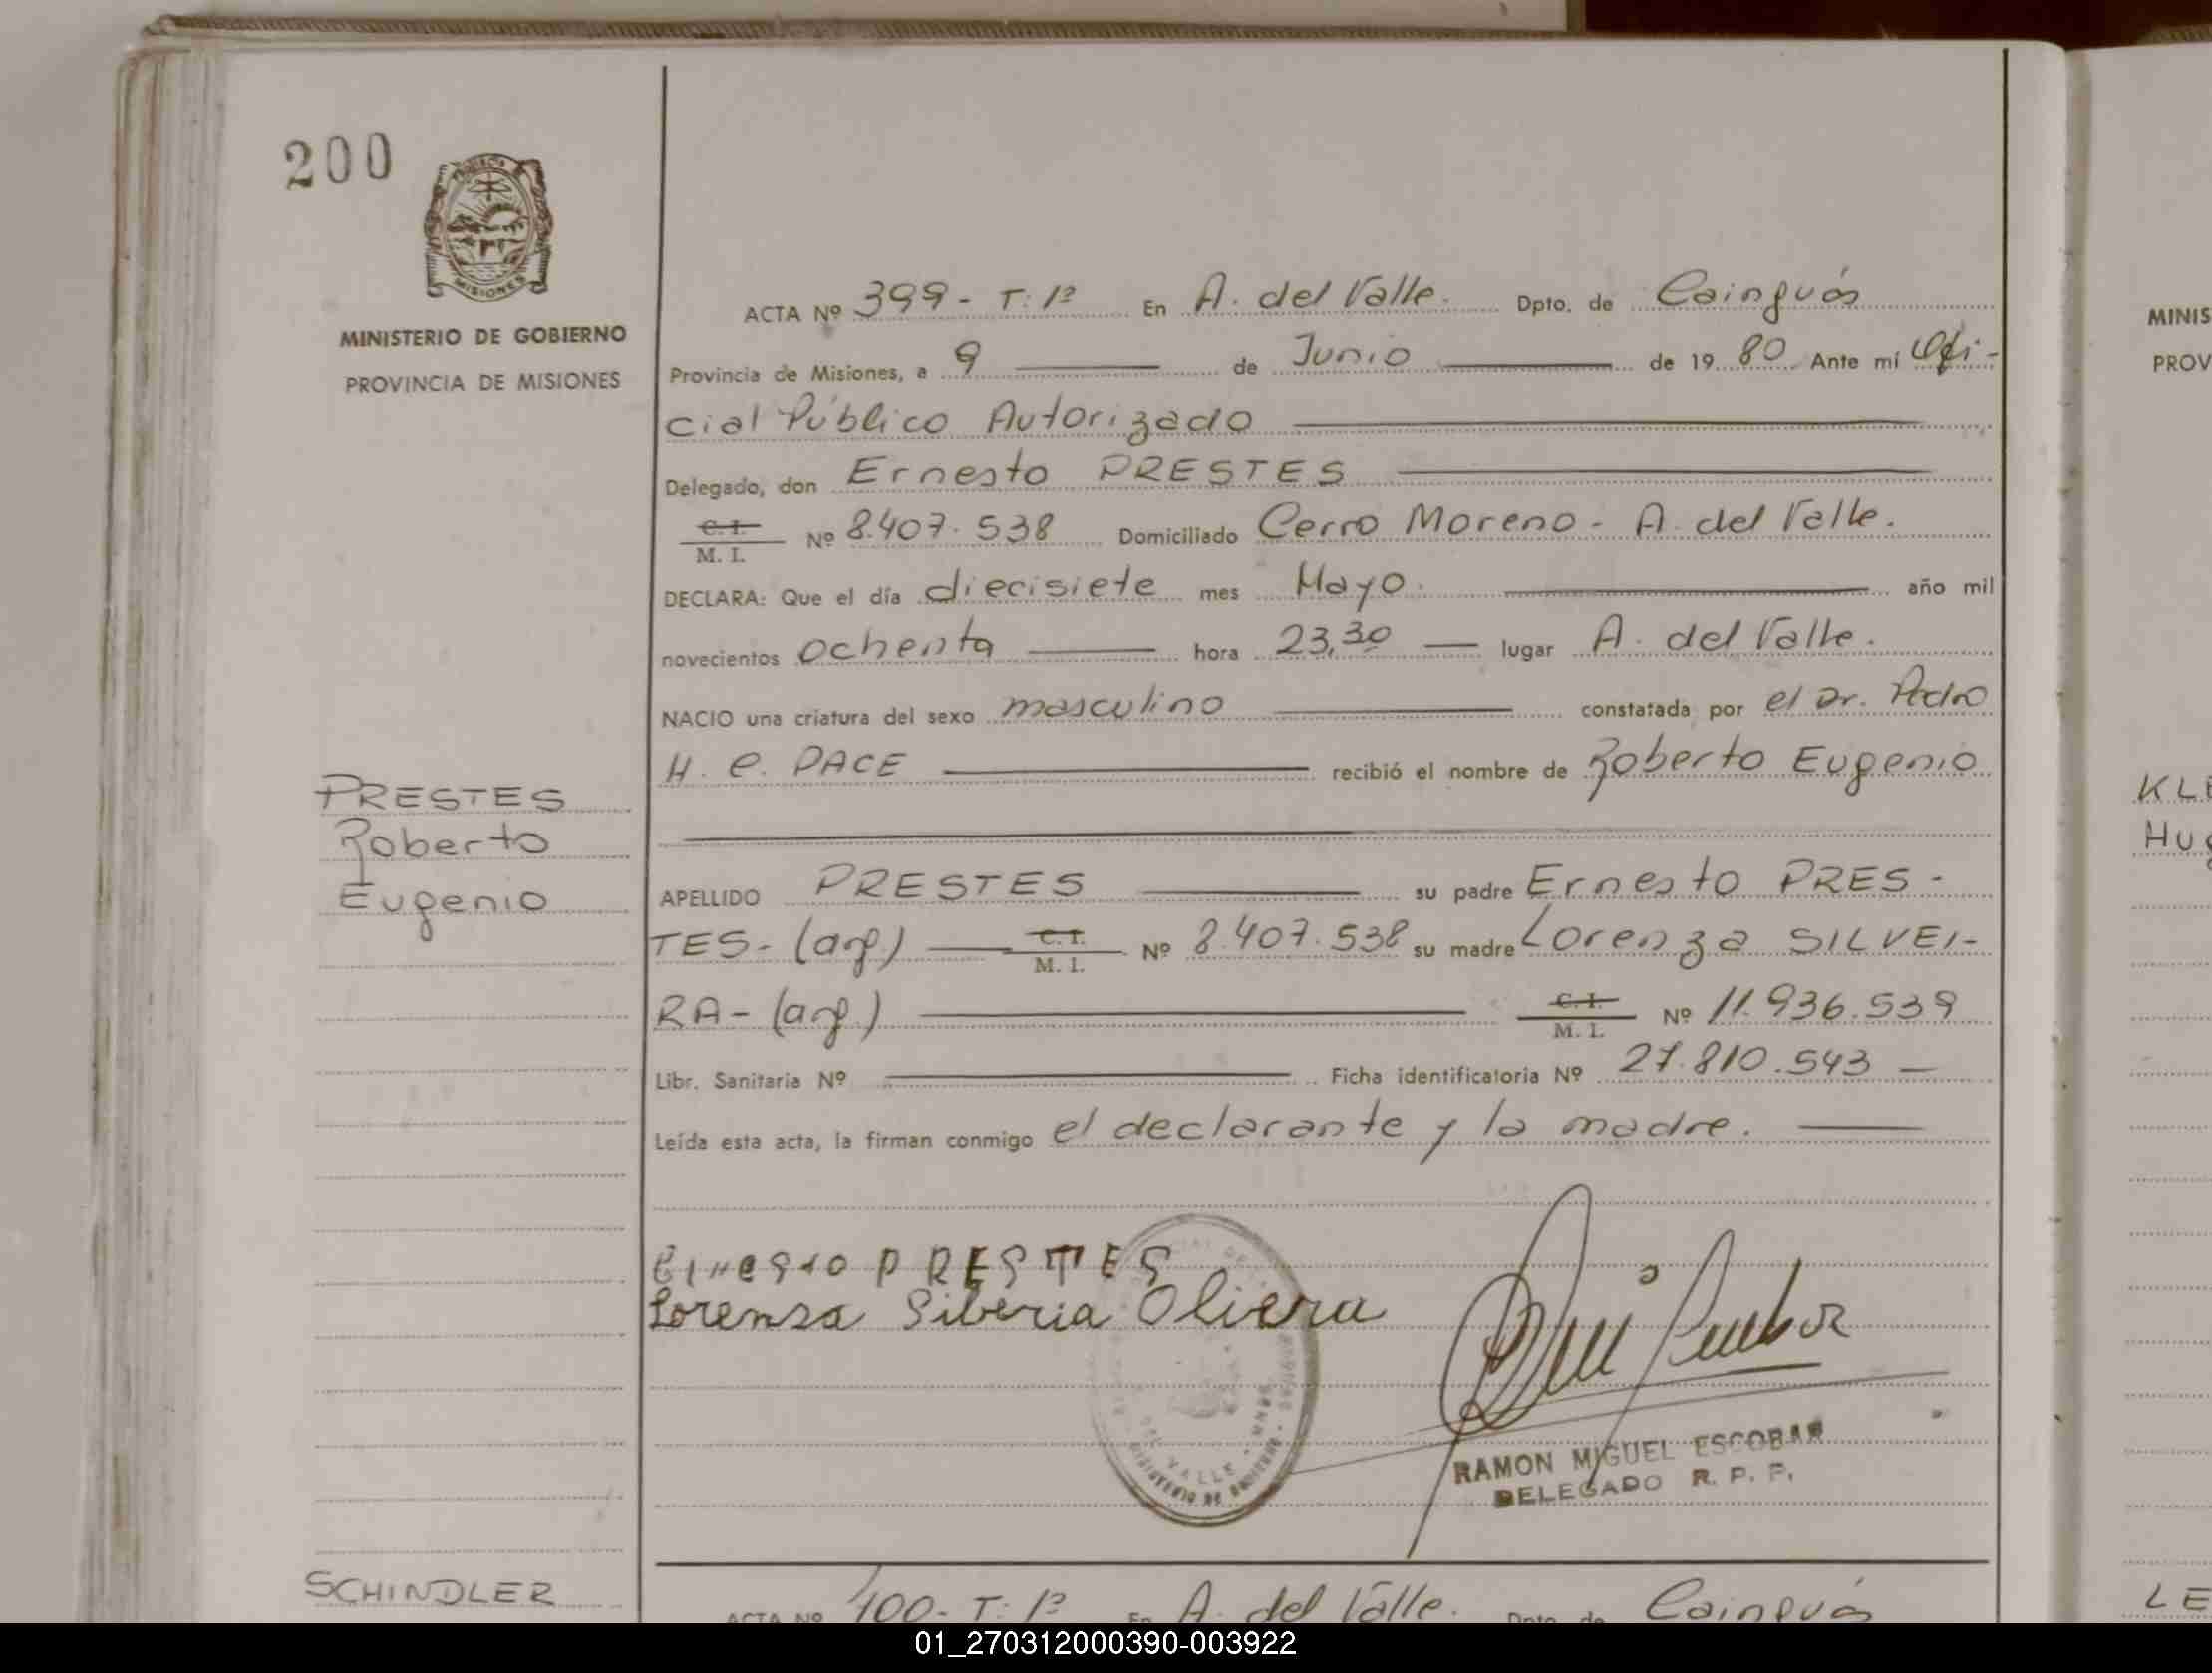 200
PROVINCIA
MISIONES
MINISTERIO DE GOBIERNO
PROVINCIA DE MISIONES
ACTA Nº 399- T: 1º En A. del Valle. Dpto. de Cainguás
Provincia de Misiones, a 9 de Junio de 19 80 Ante mí Ofi-
cial Público Autorizado
Delegado, don Ernesto PRESTES
C. I.
M. I. Nº 8.407.538 Domiciliado Cerro Moreno - A. del Valle.
DECLARA: Que el día diecisiete mes Mayo. año mil
novecientos ochenta hora 23,30 lugar A. del Valle.
NACIO una criatura del sexo masculino constatada por el Dr. Pedro
H. C. PACE recibió el nombre de Roberto Eugenio
PRESTES
Roberto
Eugenio
APELLIDO PRESTES su padre Ernesto PRES-
TES- (arg.) C. I. M. I. Nº 8.407.538 su madre Lorenza SILVEI-
RA- (arg.) C. I. M. I. Nº 11.936.539
Libr. Sanitaria Nº Ficha identificatoria Nº 27.810.543
Leída esta acta, la firman conmigo el declarante y la madre.
PRESTES
Lorensa Siberia Oliera
DEL VALLE - MNES
MINISTERIO DE GOBIERNO
RAMON MIGUEL ESCOBAR
DELEGADO R. P. P.
SCHINDLER
ACTA Nº 400- T: 1º En A. del Valle. Dpto de Cainguás
MINIS
PROV
KLE
Hug
LE
01_270312000390-003922